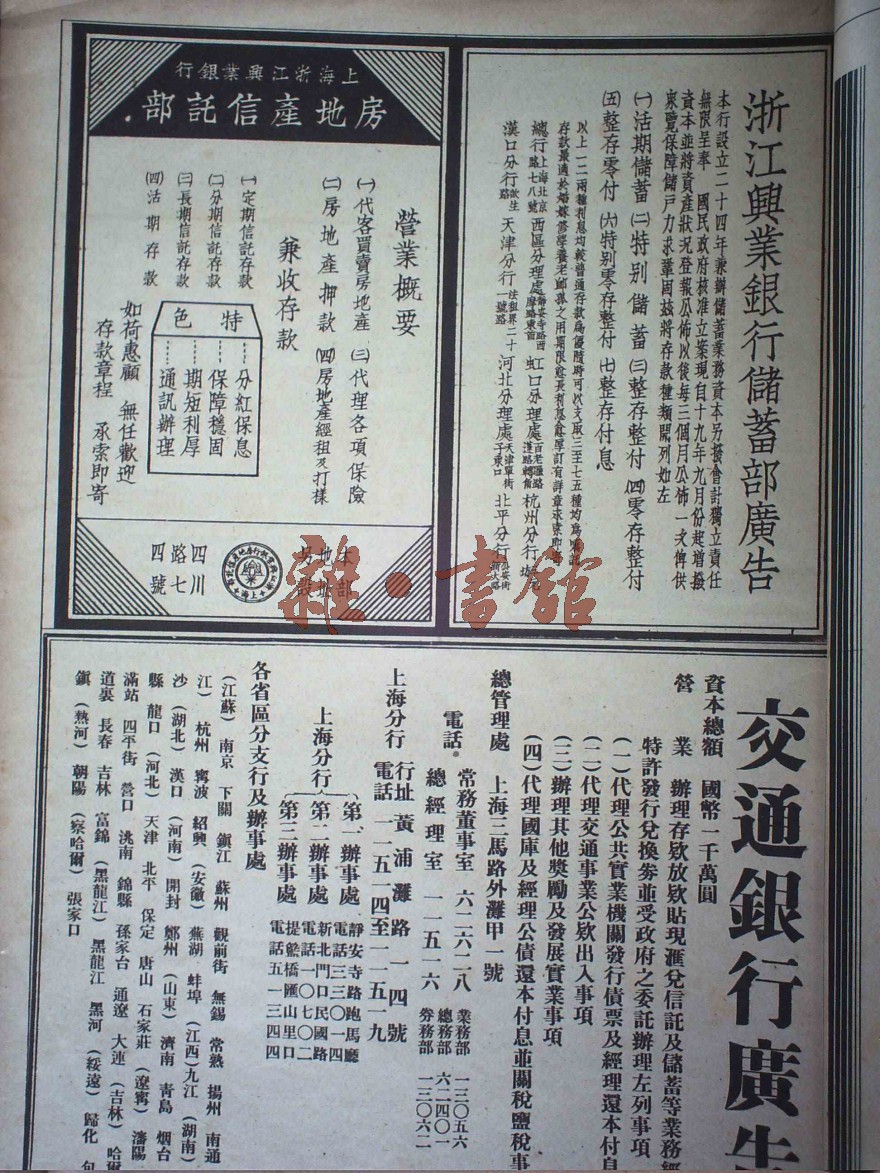 浙江興業銀行儲蓄部廣告
本行設立二十四年兼辦儲蓄業務資本另撥會計獨立責任
無限呈奉 國民政府核准立案現自十九年九月份起增撥
資本並將資產狀況登報公佈以後每三個月公佈一次俾供
衆覽保障儲戶力求鞏固茲將存款種類開列如左
㈠活期儲蓄 ㈡特別儲蓄 ㈢整存整付 ㈣零存整付
㈤整存零付 ㈥特別零存整付 ㈦整存付息
以上一二兩種利息均較普通存款爲優隨時可以支取三至七五種均爲
存款最適於婚嫁養老之用期限愈長利息愈厚訂有詳章求索即
總行上海北京路七八號 西區分理處靜安寺路西摩路東首 虹口分理處百老匯路 杭州分行
漢口分行歆生路 天津分行法租界二十一號路 河北分理處天津單街子東口 北平分行
上海浙江興業銀行
房地產信託部
營業概要
㈠代客買賣房地產 ㈢代理各項保險
㈡房地產押款 ㈣房地產經租及打樣
兼收存款
㈠定期信託存款
㈡分期信託存款
㈢長期信託存款
㈣活期存款
特色
分紅保息
保障穩固
期短利厚
通訊辦理
如荷惠顧 無任歡迎
存款章程 承索即寄
本部
地址
另設
四川
路七
四號
雜·書館
交通銀行廣告
資本總額 國幣一千萬圓
營業 辦理存欵放欵貼現匯兌信託及儲蓄等業務經
特許發行兌換劵並受政府之委託辦理左列事項
(一)代理公共實業機關發行債票及經理還本付息
(二)代理交通事業公欵出入事項
(三)辦理其他獎勵及發展實業事項
(四)代理國庫及經理公債還本付息並關稅鹽稅事
總管理處 上海三馬路外灘甲一號
電話 常務董事室 六二六二八 業務部 一三〇五六
總經理室 一一五一六 總務部 六二四〇一
劵務部 一三〇六二
上海分行 行址 黃浦灘路一四號
電話 一一五一四至一一五一九
上海分行 第一辦事處 靜安寺路跑馬廳 電話三三〇一四
第二辦事處 新北門口民國路 電話一〇七〇二
第三辦事處 提籃橋匯山里口 電話五一三四四
各省區分支行及辦事處
(江蘇) 南京 下關 鎭江 蘇州 觀前街 無錫 常熟 揚州 南通
江) 杭州 寗波 紹興 (安徽) 蕪湖 蚌埠 (江西) 九江 (湖南)
沙 (湖北) 漢口 (河南) 開封 鄭州 (山東) 濟南 青島 烟台
縣 龍口 (河北) 天津 北平 保定 唐山 石家莊 (遼寗) 瀋陽
滿站 四平街 營口 洮南 錦縣 孫家台 通遼 大連 (吉林) 哈爾
道裏 長春 吉林 富錦 (黑龍江) 黑龍江 黑河 (綏遠) 歸化 包
鎭 (熱河) 朝陽 (察哈爾) 張家口